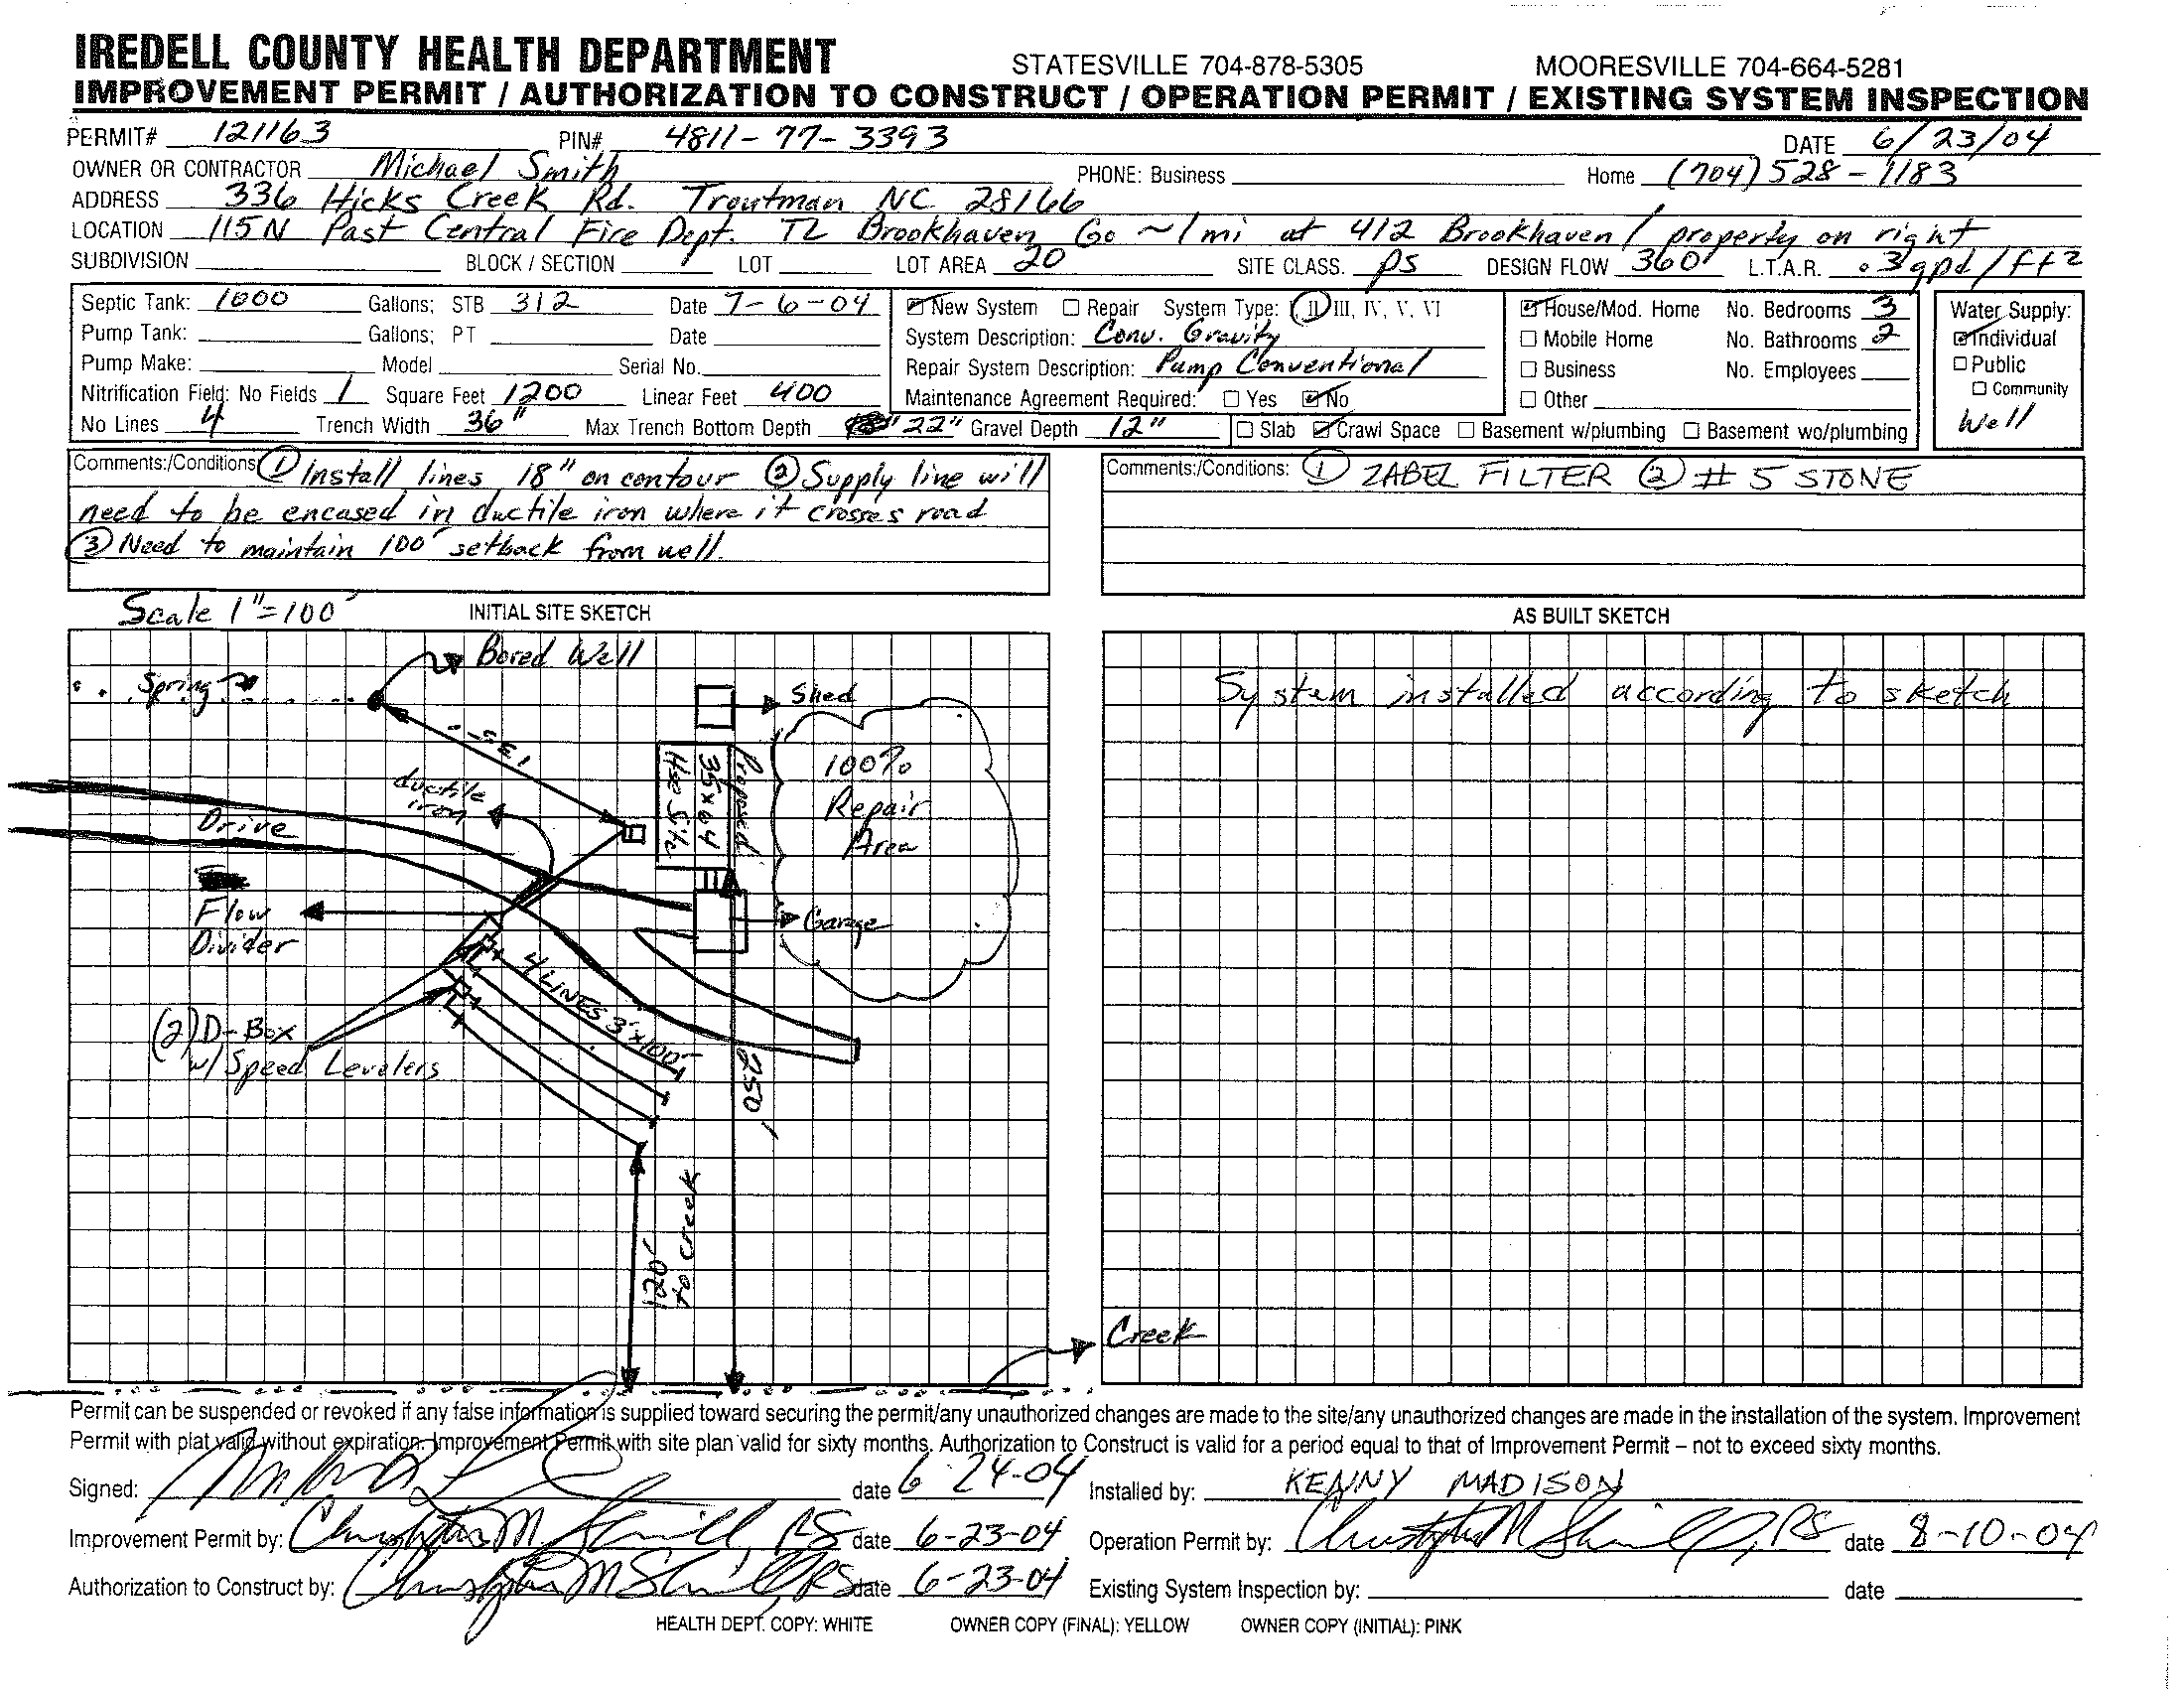 IREDELL COUNTY HEALTH DEPARTMENT STATESVILLE 704-878-5305 MOORESVILLE 704-664-5281
IMPROVEMENT PERMIT / AUTHORIZATION TO CONSTRUCT / OPERATION PERMIT / EXISTING SYSTEM INSPECTION
PERMIT# 121163 PIN# 4811-77-3393 DATE 6/23/04
OWNER OR CONTRACTOR Michael Smith PHONE: Business Home (704) 528-1183
ADDRESS 336 Hicks Creek Rd. Troutman NC 28166
LOCATION 115N Past Central Fire Dept. TL Brookhaven Go ~1 mi at 412 Brookhaven / property on right
SUBDIVISION BLOCK / SECTION LOT LOT AREA 20 SITE CLASS. PS DESIGN FLOW 360 L.T.A.R. .3 gpd/ft2
Septic Tank: 1000 Gallons; STB 312 Date 7-6-04 New System Repair System Type: II III, IV, V, VI House/Mod. Home No. Bedrooms 3 Water Supply:
Pump Tank: Gallons; PT Date System Description: Conv. Gravity Mobile Home No. Bathrooms 2 Individual
Pump Make: Model Serial No. Repair System Description: Pump Conventional Business No. Employees Public
Nitrification Field: No Fields 1 Square Feet 1200 Linear Feet 400 Maintenance Agreement Required: Yes No Other Community
No Lines 4 Trench Width 36" Max Trench Bottom Depth 22" Gravel Depth 12" Slab Crawl Space Basement w/plumbing Basement wo/plumbing Well
Comments:/Conditions ① Install lines 18" on contour ② Supply line will
need to be encased in ductile iron where it crosses road
③ Need to maintain 100' setback from well.
Comments:/Conditions: ① ZABEL FILTER ② #5 STONE
Scale 1"=100' INITIAL SITE SKETCH
Bored Well
Spring
Shed
135'
Proposed
35x64
Hse Site
100%
Repair
Area
ductile
iron
Drive
Flow
Divider
Garage
4 LINES 3'x100'
(2) D-Box
w/ Speed Levelers
250'
120'
to creek
Creek
AS BUILT SKETCH
System installed according to sketch
Permit can be suspended or revoked if any false information is supplied toward securing the permit/any unauthorized changes are made to the site/any unauthorized changes are made in the installation of the system. Improvement
Permit with plat valid without expiration. Improvement Permit with site plan valid for sixty months. Authorization to Construct is valid for a period equal to that of Improvement Permit – not to exceed sixty months.
Signed: date 6-24-04 Installed by: KENNY MADISON
Improvement Permit by: RS date 6-23-04 Operation Permit by: RS date 8-10-04
Authorization to Construct by: RS date 6-23-04 Existing System Inspection by: date
HEALTH DEPT. COPY: WHITE OWNER COPY (FINAL): YELLOW OWNER COPY (INITIAL): PINK